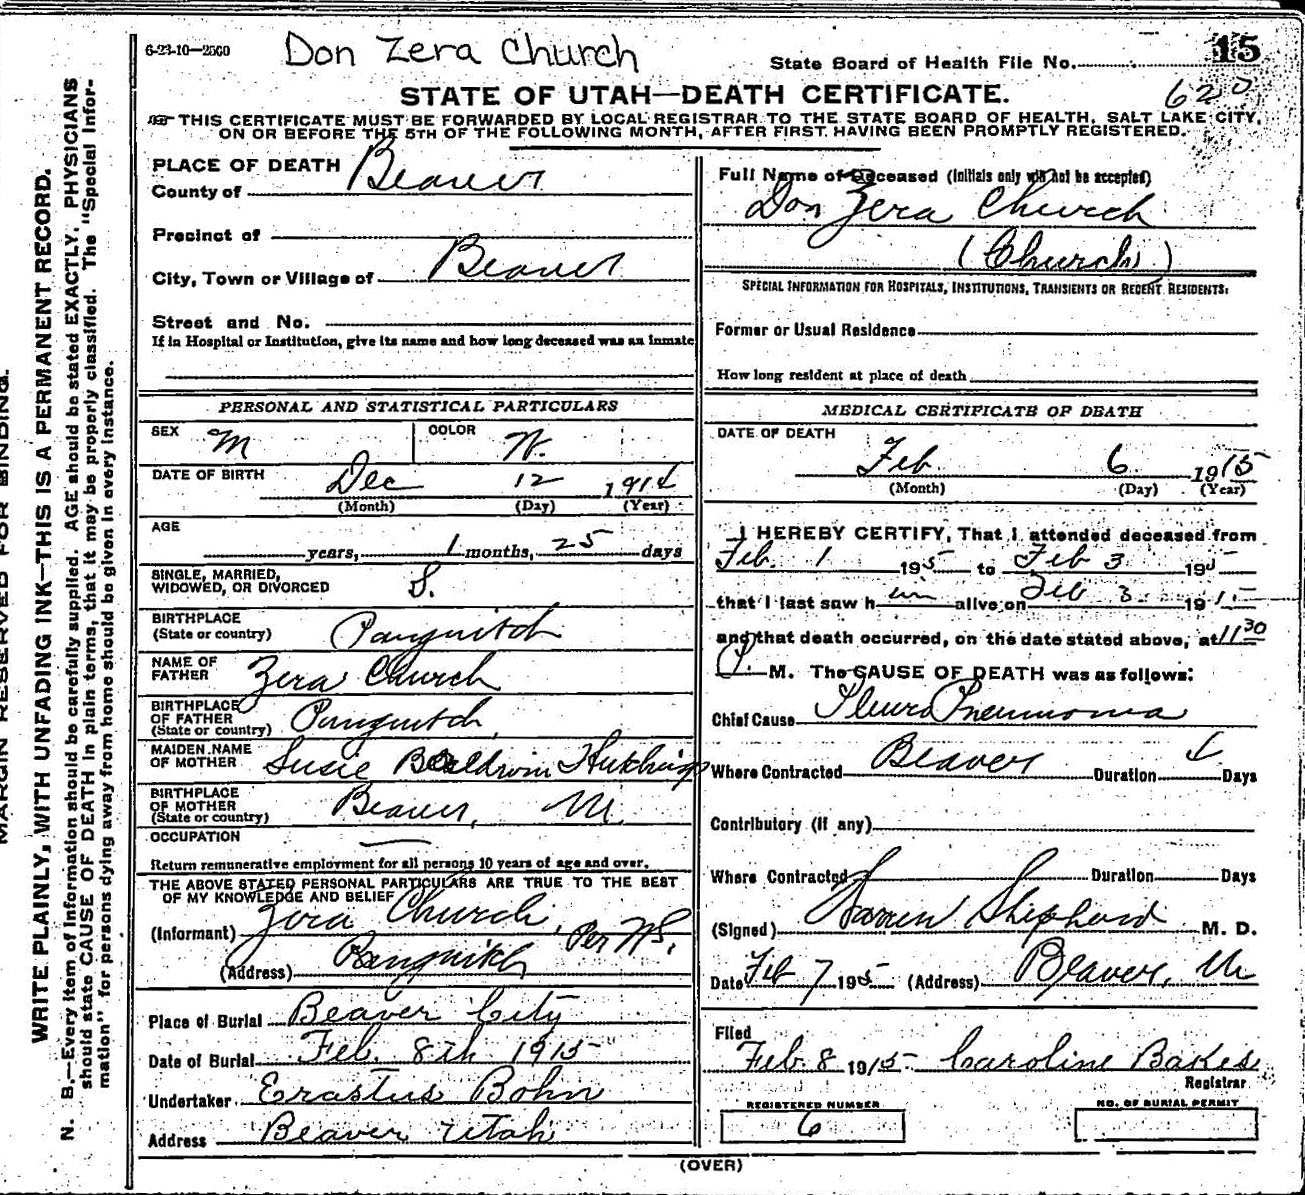 15
6-23-10—2500 Don Zera Church
State Board of Health File No.
620
STATE OF UTAH—DEATH CERTIFICATE.
THIS CERTIFICATE MUST BE FORWARDED BY LOCAL REGISTRAR TO THE STATE BOARD OF HEALTH, SALT LAKE CITY,
ON OR BEFORE THE 5TH OF THE FOLLOWING MONTH, AFTER FIRST HAVING BEEN PROMPTLY REGISTERED.
PLACE OF DEATH
County of Beaver
Precinct of
City, Town or Village of Beaver
Street and No.
If in Hospital or Institution, give its name and how long deceased was an inmate
PERSONAL AND STATISTICAL PARTICULARS
SEX M COLOR W.
DATE OF BIRTH Dec 12 1914
(Month) (Day) (Year)
AGE
years, 1 months, 25 days
SINGLE, MARRIED,
WIDOWED, OR DIVORCED S.
BIRTHPLACE
(State or country) Panguitch
NAME OF
FATHER Zera Church
BIRTHPLACE
OF FATHER
(State or country) Panguitch,
MAIDEN NAME
OF MOTHER Susie Baldwin Hutchings
BIRTHPLACE
OF MOTHER
(State or country) Beaver, Ut.
OCCUPATION
Return remunerative employment for all persons 10 years of age and over.
THE ABOVE STATED PERSONAL PARTICULARS ARE TRUE TO THE BEST
OF MY KNOWLEDGE AND BELIEF
(Informant) Zera Church, Per WS.
(Address) Panguitch
Place of Burial Beaver City
Date of Burial Feb. 8th 1915
Undertaker Erastus Bohn
Address Beaver Utah
Full Name of Deceased (Initials only will not be accepted)
Don Zera Church
(Church)
SPECIAL INFORMATION FOR HOSPITALS, INSTITUTIONS, TRANSIENTS OR RECENT RESIDENTS:
Former or Usual Residence
How long resident at place of death
MEDICAL CERTIFICATE OF DEATH
DATE OF DEATH
Feb 6 1915
(Month) (Day) (Year)
I HEREBY CERTIFY, That I attended deceased from
Feb. 1 195 to Feb 3 195
that I last saw h im alive on Feb 3 1915
and that death occurred, on the date stated above, at 11 30
P. M. The CAUSE OF DEATH was as follows:
Chief Cause Pleuro Pneumonia
Where Contracted Beaver Duration Days
Contributory (if any)
Where Contracted Duration Days
(Signed) Warren Shepherd M. D.
Date Feb 7 195 (Address) Beaver, Ut
Filed
Feb. 8 1915 Caroline Bakes
Registrar
REGISTERED NUMBER
6
NO. OF BURIAL PERMIT
(OVER)
MARGIN RESERVED FOR BINDING.
WRITE PLAINLY, WITH UNFADING INK—THIS IS A PERMANENT RECORD.
N. B.—Every item of information should be carefully supplied. AGE should be stated EXACTLY. PHYSICIANS
should state CAUSE OF DEATH in plain terms, that it may be properly classified. The "Special Infor-
mation" for persons dying away from home should be given in every instance.